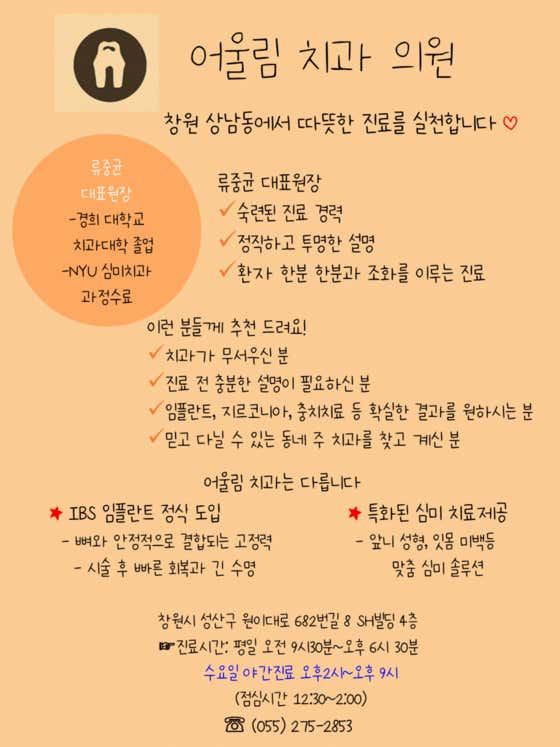 어울림 치과 의원
창원 상남동에서 따뜻한 진료를 실천합니다 ♡
류중균
대표원장
-경희 대학교
치과대학 졸업
-NYU 심미치과
과정수료
류중균 대표원장
✓숙련된 진료 경력
✓정직하고 투명한 설명
✓환자 한분 한분과 조화를 이루는 진료
이런 분들께 추천 드려요!
✓치과가 무서우신 분
✓진료 전 충분한 설명이 필요하신 분
✓임플란트, 지르코니아, 충치치료 등 확실한 결과를 원하시는 분
✓믿고 다닐 수 있는 동네 주 치과를 찾고 계신 분
어울림 치과는 다릅니다
★ IBS 임플란트 정식 도입
- 뼈와 안정적으로 결합되는 고정력
- 시술 후 빠른 회복과 긴 수명
★ 특화된 심미 치료제공
- 앞니 성형, 잇몸 미백등
맞춤 심미 솔루션
창원시 성산구 원이대로 682번길 8 SH빌딩 4층
☞진료시간: 평일 오전 9시30분~오후 6시 30분
수요일 야간진료 오후2시~오후 9시
(점심시간 12:30~2:00)
☏ (055) 275-2853